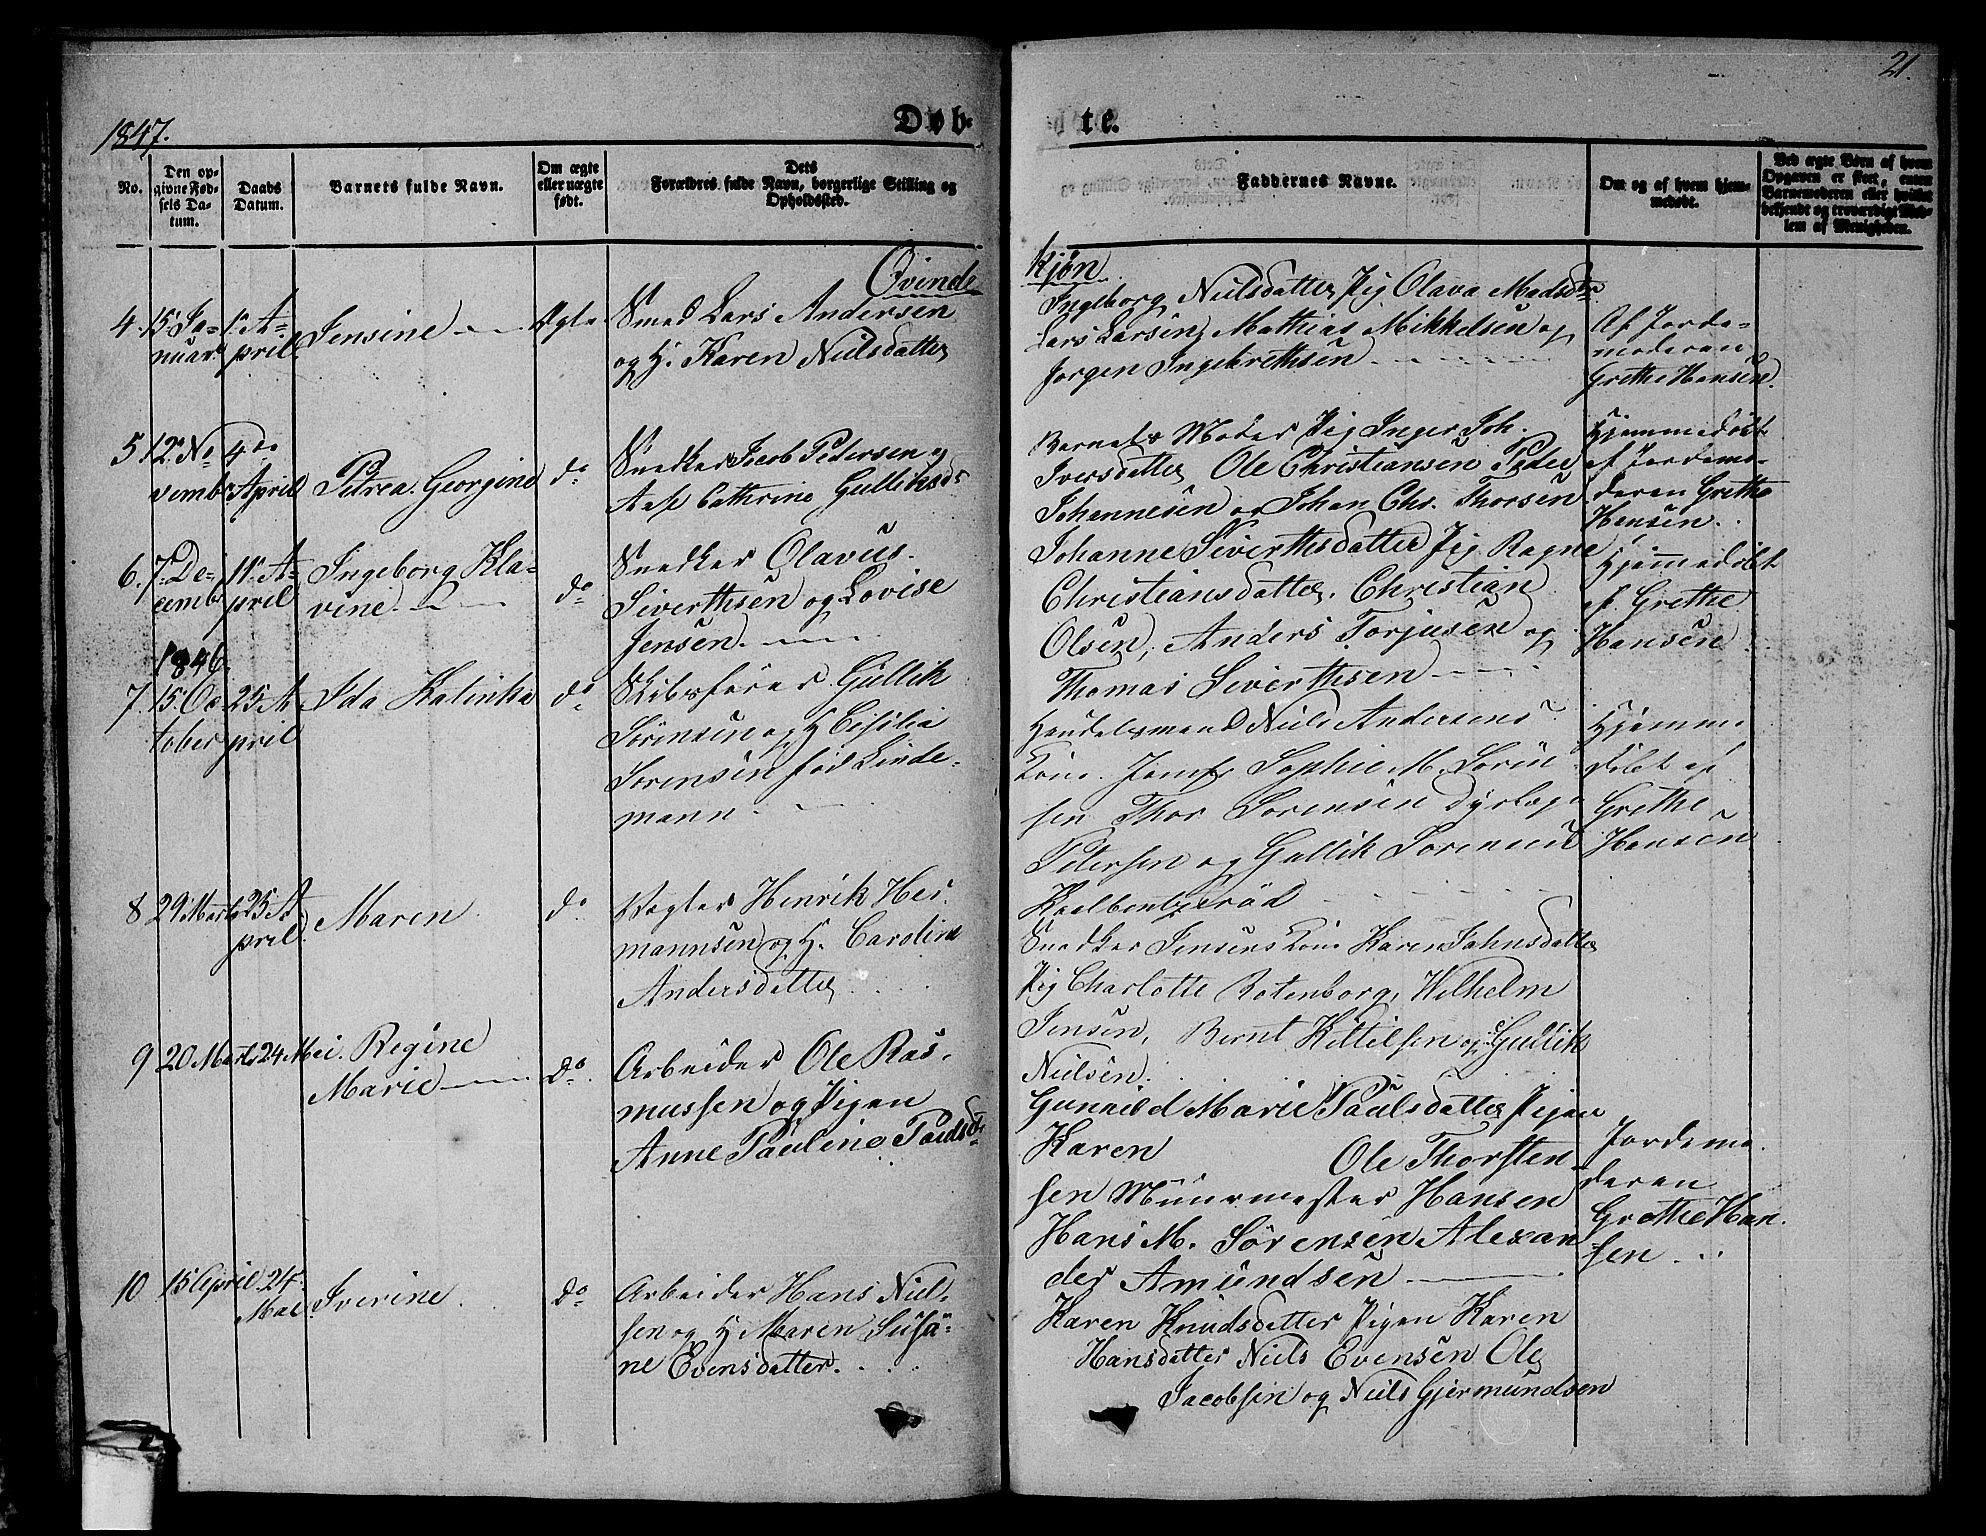 21.
1847.
Døb-
te.
No.
Den op-
givne Fød-
sels Da-
tum.
Daabs
Datum.
Barnets fulde Navn.
Om ægte
eller uægte
født.
Dets
Forældres fulde Navn, borgerlige Stilling og
Opholdssted.
Faddernes Navne.
Om og af hvem hjem-
medøbt.
Ved ægte Børn af hvem
Opgaven er skeet, enten
Barnemoderen eller hvilket
bekjendt og troværdigt Med-
lem af Menigheden.
Qvinde
kjøn
4. 15 Ja-
nuar.
1. A-
pril
Jensine
Ægte
Smed Lars Andersen
og H. Karen Nielsdatter
Ingeborg Nielsdatter Pig Olava Madsdtr
Lars Larsen, Mathias Mikkelsen og
Jørgen Ingebrethsen
Af Jorde-
moderen
Grethe Hansen.
5 12 No
vembr
4de
April
Petrea Georgine
do
Snedker Jacob Pedersen og
Cathrine Gulliksdr
Barnets Moder Pig Inger Joh.
Iversdatter Ole Christiansen Peder
Johannesen og Johan Chr. Thorsen
Hjemmedøbt
af Jordemo-
deren Grethe
Hansen.
6. 7 De-
cembr
1846.
11 A-
pril
Ingeborg Kla-
vine
do
Snedker Olavus
Siverthsen og Lovise
Jensen.
Johanne Siverthsdatter Pig Ragne
Christiansdatter, Christian
Olsen, Anders Torjusen og
Thomas Siverthsen
Hjemmedøbt
af Grethe
Hansen
7. 15 Oc
tober
25 A
pril
Ida Kalinka
do
Skibsfører Gullik
Sørensen og H Cisilia
Sørensen fød Linde-
mann
Handelsmand Niels Andersens
Kone. Jomf. Sophie M. Søren
sen Thor Sørensen Dyrlæge
Petersen og Gullik Sørensen
Hjemme
døbt af
Grethe
Hansen
8 29 Marts
25 A
pril
Maren
do
Vægter Henrik Her
mannsen og H. Caroline
Andersdatter
Snedker Jensens Kone Karen Jahnsdatter
Pig Charlotte Rotenborg, Wilhelm
Jensen, Bernt Kittilsen og Gullik
Nielsen.
9 20 Marts
24 Mai.
Regine
Marie
do
Arbeider Ole Ras-
mussen og Pigen
Anne Pauline Paulsdr
Gunild Marie Paulsdatter Pigen
Karen Ole Thorsten
sen Muurmester Hansen
Hans M. Sørensen Alexan
der Amundsen
Jordemo
deren
Grethe Han
sen
10 15 April
24
Mai.
Iverine
do
Arbeider Hans Niel-
sen og H Maren Susa-
ne Evensdatter.
Karen Knudsdatter Pigen Karen
Hansdatter Niels Evensen Ole
Jacobsen og Niels Gjermundsen